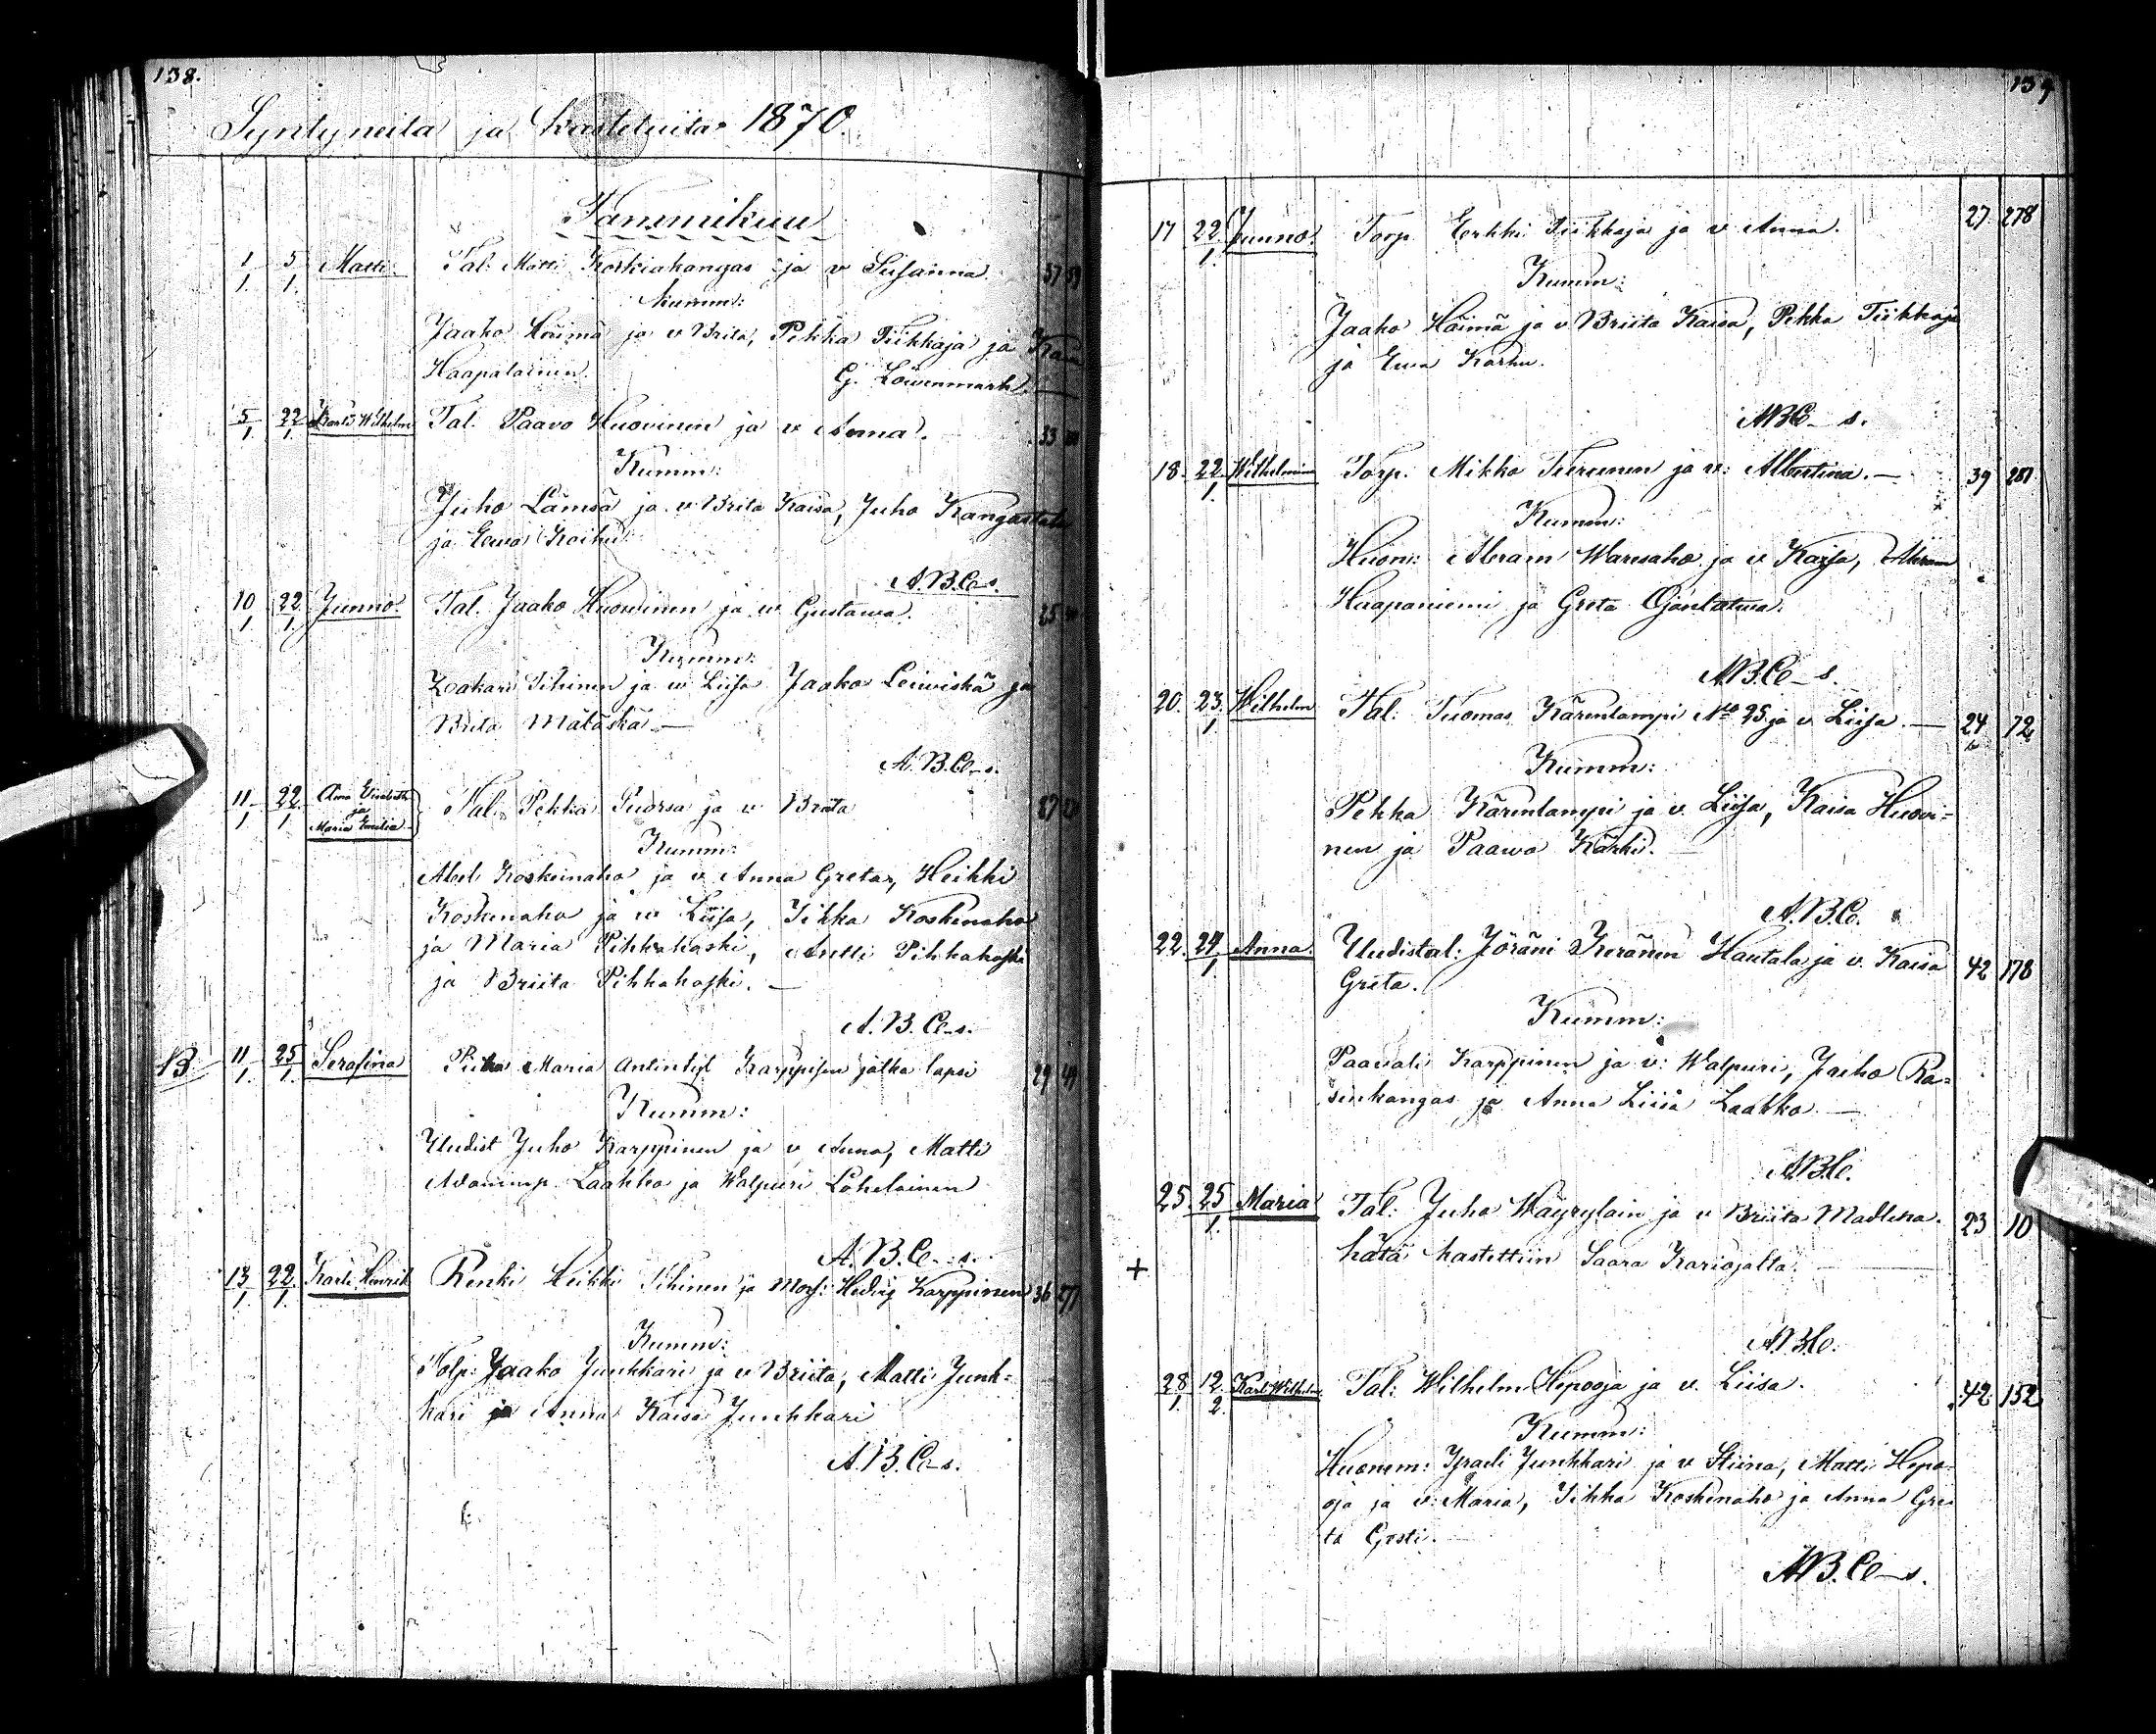 138.
Syntyneitä ja kastetuita 1870.
Tammikuu
1/1 5/1 Matti Tal: Matti Koskiakangas ja v Susanna. 37 59
Kumm:
Jaako Häimä ja v Brita, Pekka Tiikkaja ja
Haapalainen. G. Löwenmark.
5/1 22/1 Karl Wilhelm Tal. Paavo Huovinen ja v Anna. 33
Kumm:
Juho Lämsä ja v Brita Kaisa, Juho Kangastalo
ja Ewa Koihu
A.B.C-s.
10/1 22/1 Junno. Tal. Jaako Huovinen ja w Gustawa. 25
Kumm:
Zakari Tihinen ja w Liisa Jaako Leiviskä ja
Brita Mätäskä —
A.B.C-s.
11/1 22/1 Anna Elisabeth
ja
Maria Emilia Tal. Pekka Puorsa ja v Briita 27
Kumm:
Abel Koskenaho ja v Anna Greta, Heikki
Koskenaho ja w Liisa, Iikka Koskenaho
ja Maria Pihkakoski, Antti Pihkakoski
ja Briita Pihkakoski. —
A.B.C-s.
13 11/1 25/1 Serafina Piika Maria Antintyt Karppisen jälka lapsi 29 49
Kumm:
Uudist Juho Karppinen ja v Anna, Matti
Adaminp. Laakko ja Walpuri Lohelainen
A.B.C-s.
13/1 22/1 Karl Henrik Renki Heikki Tihinen ja Mors: Hedvig Karppinen 36 271
Kumm:
Tolp: Jaako Junkkari ja v Briita, Matti Junk=
kari ja Anna Kaisa Junkkari
A.B.C-s.
139
17 22/1 Junno. Torp. Erkki Tiikkaja ja v Anna. 27 278
Kumm:
Jaako Häimä ja v Briita Kaisa, Pekka Tiikkaja
ja Ewa Karhu.
ABC-s.
18. 22/1 Wilhelmina Torp. Mikko Turunen ja v: Albertina. — 39 281
Kumm:
Huon: Abram Waresaho ja v Kaisa, Abram
Haapaniemi ja Greta Ojanlatwa.
A.B.C-s.
20. 23/1 Wilhelm Tal: Tuomas Kärenlampi No 25 ja v Liisa. — 24 72
Kumm:
Pekka Kärenlampi ja v. Liisa, Kaisa Huovi=
nen ja Paawo Kärki. —
A.B.C.
22. 24/1 Anna. Uudistal: Jöräni Keränen Hautala ja v. Kaisa 42 178
Greta.
Kumm:
Paavali Karppinen ja v: Walpuri, Jaeho Ra=
senkangas ja Anna Liisa Laakko —
ABC.
25. 25/1 Maria Tal: Juho Wäyrylain ja v Briita Madlena. 23 10
+ hätä kastettiin Saara Kariojalta.
ABC.
28/1 12/2. Karl Wilhelm Tal: Wilhelm Hepooja ja v. Liisa. 42 152
Kumm:
Huonem: Israeli Junkkari ja v Stiina, Matti Hepo=
oja ja v: Maria, Iikka Koskenaho ja Anna Gre=
ta Gesti. —
A.B.C-s.